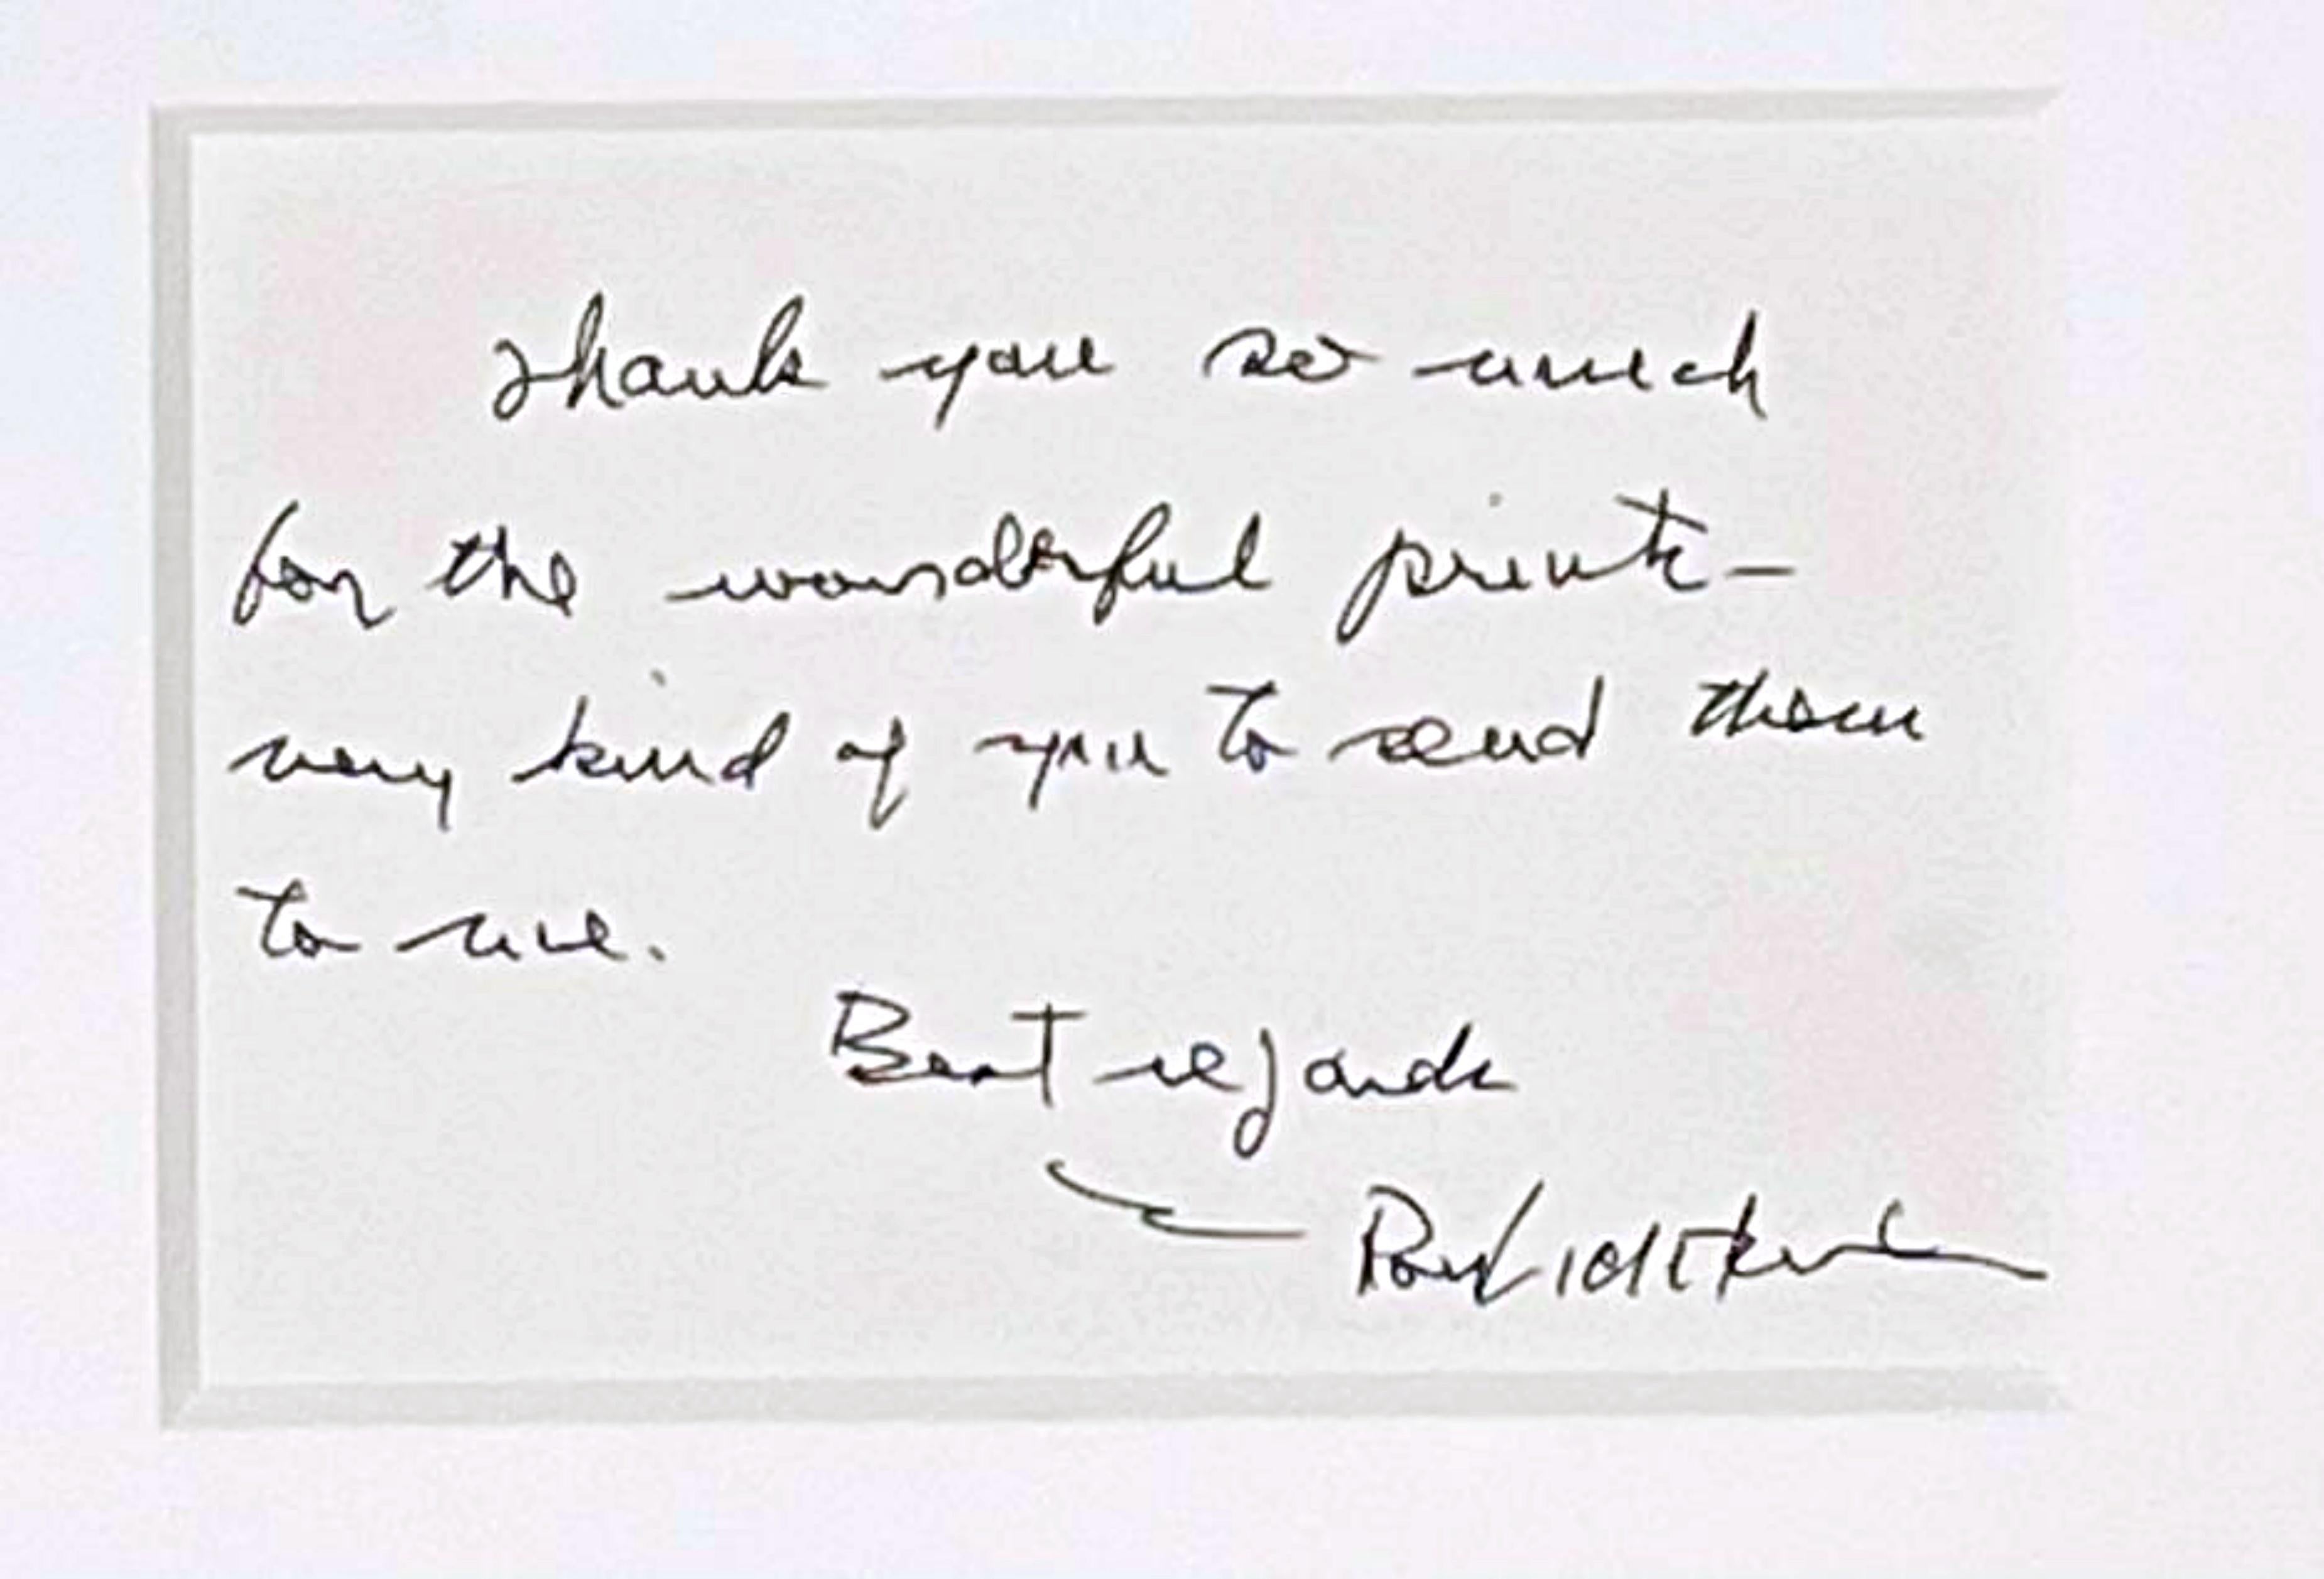 Thank you so much
for the wonderful prints –
very kind of you to send them
to me.
Best regards
Paul